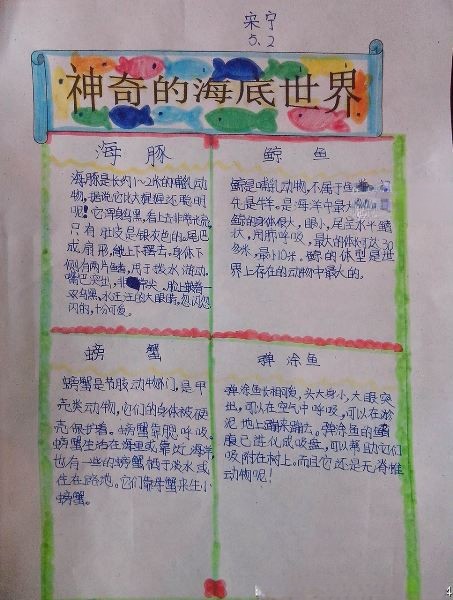 宋宁
5.2
神奇的海底世界
海豚
海豚是长约1~2米的哺乳动
物,据说它比大猩猩还聪明
呢!它浑身乌黑,看上去非常光滑,
只有肚皮是银灰色的。尾巴
成扇形,能上下摆去,身体下
侧有两片鳍,用于拨水游动。
嘴巴突出,非常尖。脸上嵌着一
双乌黑,水汪汪的大眼睛,忽闪忽
闪的,十分可爱。
鲸鱼
鲸是哺乳动物,不属于鱼
牛是牛羊。是海洋中最大
鲸的身体很大,眼小,尾呈水平鳍
状,用肺呼吸,最大的体长可达30
多米,最小10米。鲸的体型是世
界上存在的动物中最大的。
螃蟹
螃蟹是节肢动物门,是甲
壳类动物,它们的身体被硬
壳保护着。螃蟹靠腮呼吸。
螃蟹生活在海里或靠近海洋
也有一些的螃蟹栖于淡水或
住在陆地。它们靠母蟹来生小
螃蟹。
弹涂鱼
弹涂鱼长相可爱,头大身小,大眼突
出,可以在空气中呼吸,可以在淤
泥地上蹦来蹦去。弹涂鱼的鳍
腹已进化成吸盘,可以帮助它们
吸附在树上。而且它还是无脊椎
动物呢!
4